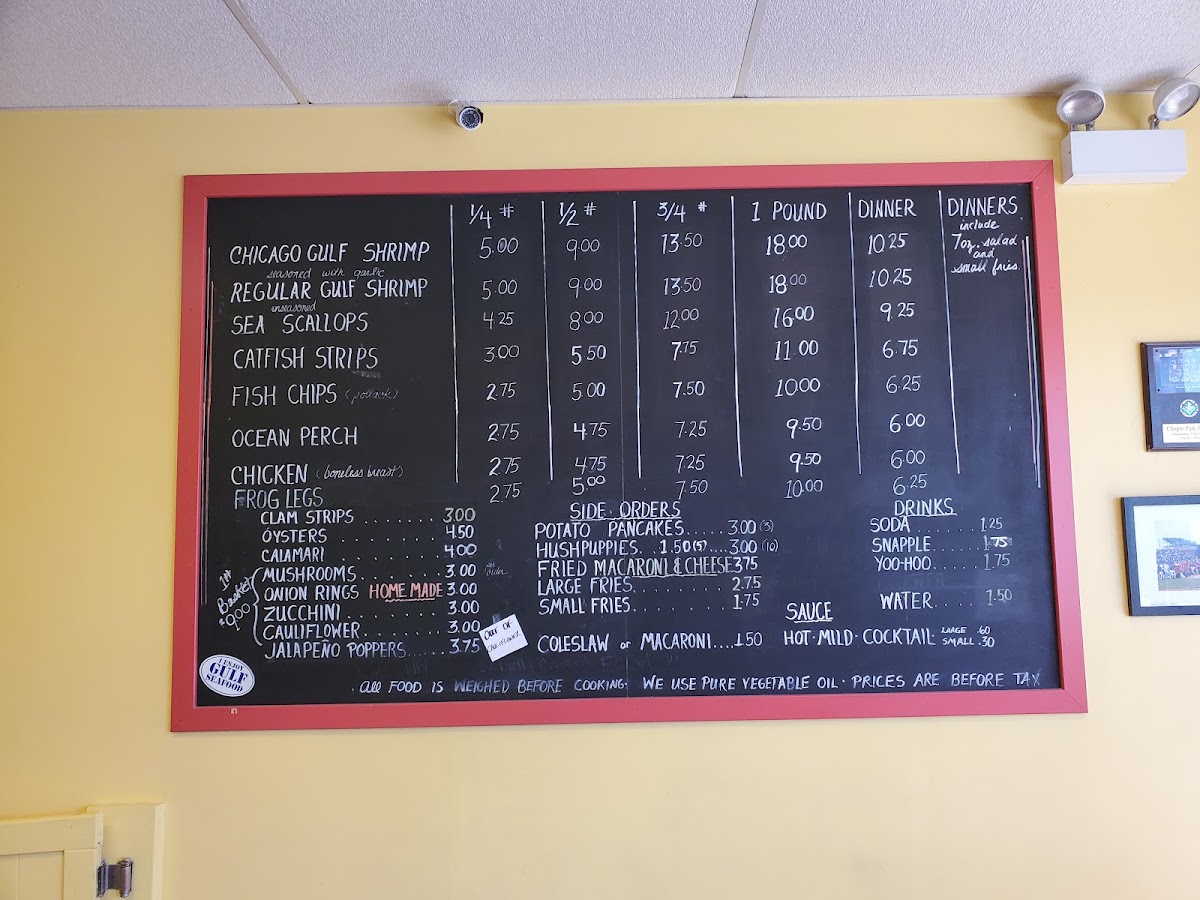 1/4 # 1/2 # 3/4 # 1 POUND DINNER DINNERS
include
7oz. salad
and
small fries.
CHICAGO GULF SHRIMP 5.00 9.00 13.50 18.00 10.25
seasoned with garlic
REGULAR GULF SHRIMP 5.00 9.00 13.50 18.00 10.25
unseasoned
SEA SCALLOPS 4.25 8.00 12.00 16.00 9.25
CATFISH STRIPS 3.00 5.50 7.75 11.00 6.75
FISH CHIPS (pollack) 2.75 5.00 7.50 10.00 6.25
OCEAN PERCH 2.75 4.75 7.25 9.50 6.00
CHICKEN (boneless breast) 2.75 4.75 7.25 9.50 6.00
FROG LEGS 2.75 5.00 7.50 10.00 6.25
CLAM STRIPS ........ 3.00
OYSTERS ........ 4.50
CALAMARI ........ 4.00
MUSHROOMS ........ 3.00
ONION RINGS HOME MADE 3.00
ZUCCHINI ........ 3.00
CAULIFLOWER ........ 3.00
JALAPEÑO POPPERS ...... 3.75
Basket
$9.00
OUT OF
CAULIFLOWER
SIDE ORDERS
POTATO PANCAKES...... 3.00 (3)
HUSHPUPPIES...1.50(5)....3.00 (10)
FRIED MACARONI & CHEESE 3.75
LARGE FRIES........ 2.75
SMALL FRIES........ 1.75
COLESLAW or MACARONI....1.50
DRINKS
SODA ........ 1.25
SNAPPLE ...... 1.75
YOO-HOO ...... 1.75
WATER .... 1.50
SAUCE
HOT·MILD·COCKTAIL LARGE .60
SMALL .30
I ENJOY
GULF
SEAFOOD
·All FOOD IS WEIGHED BEFORE COOKING· WE USE PURE VEGETABLE OIL· PRICES ARE BEFORE TAX